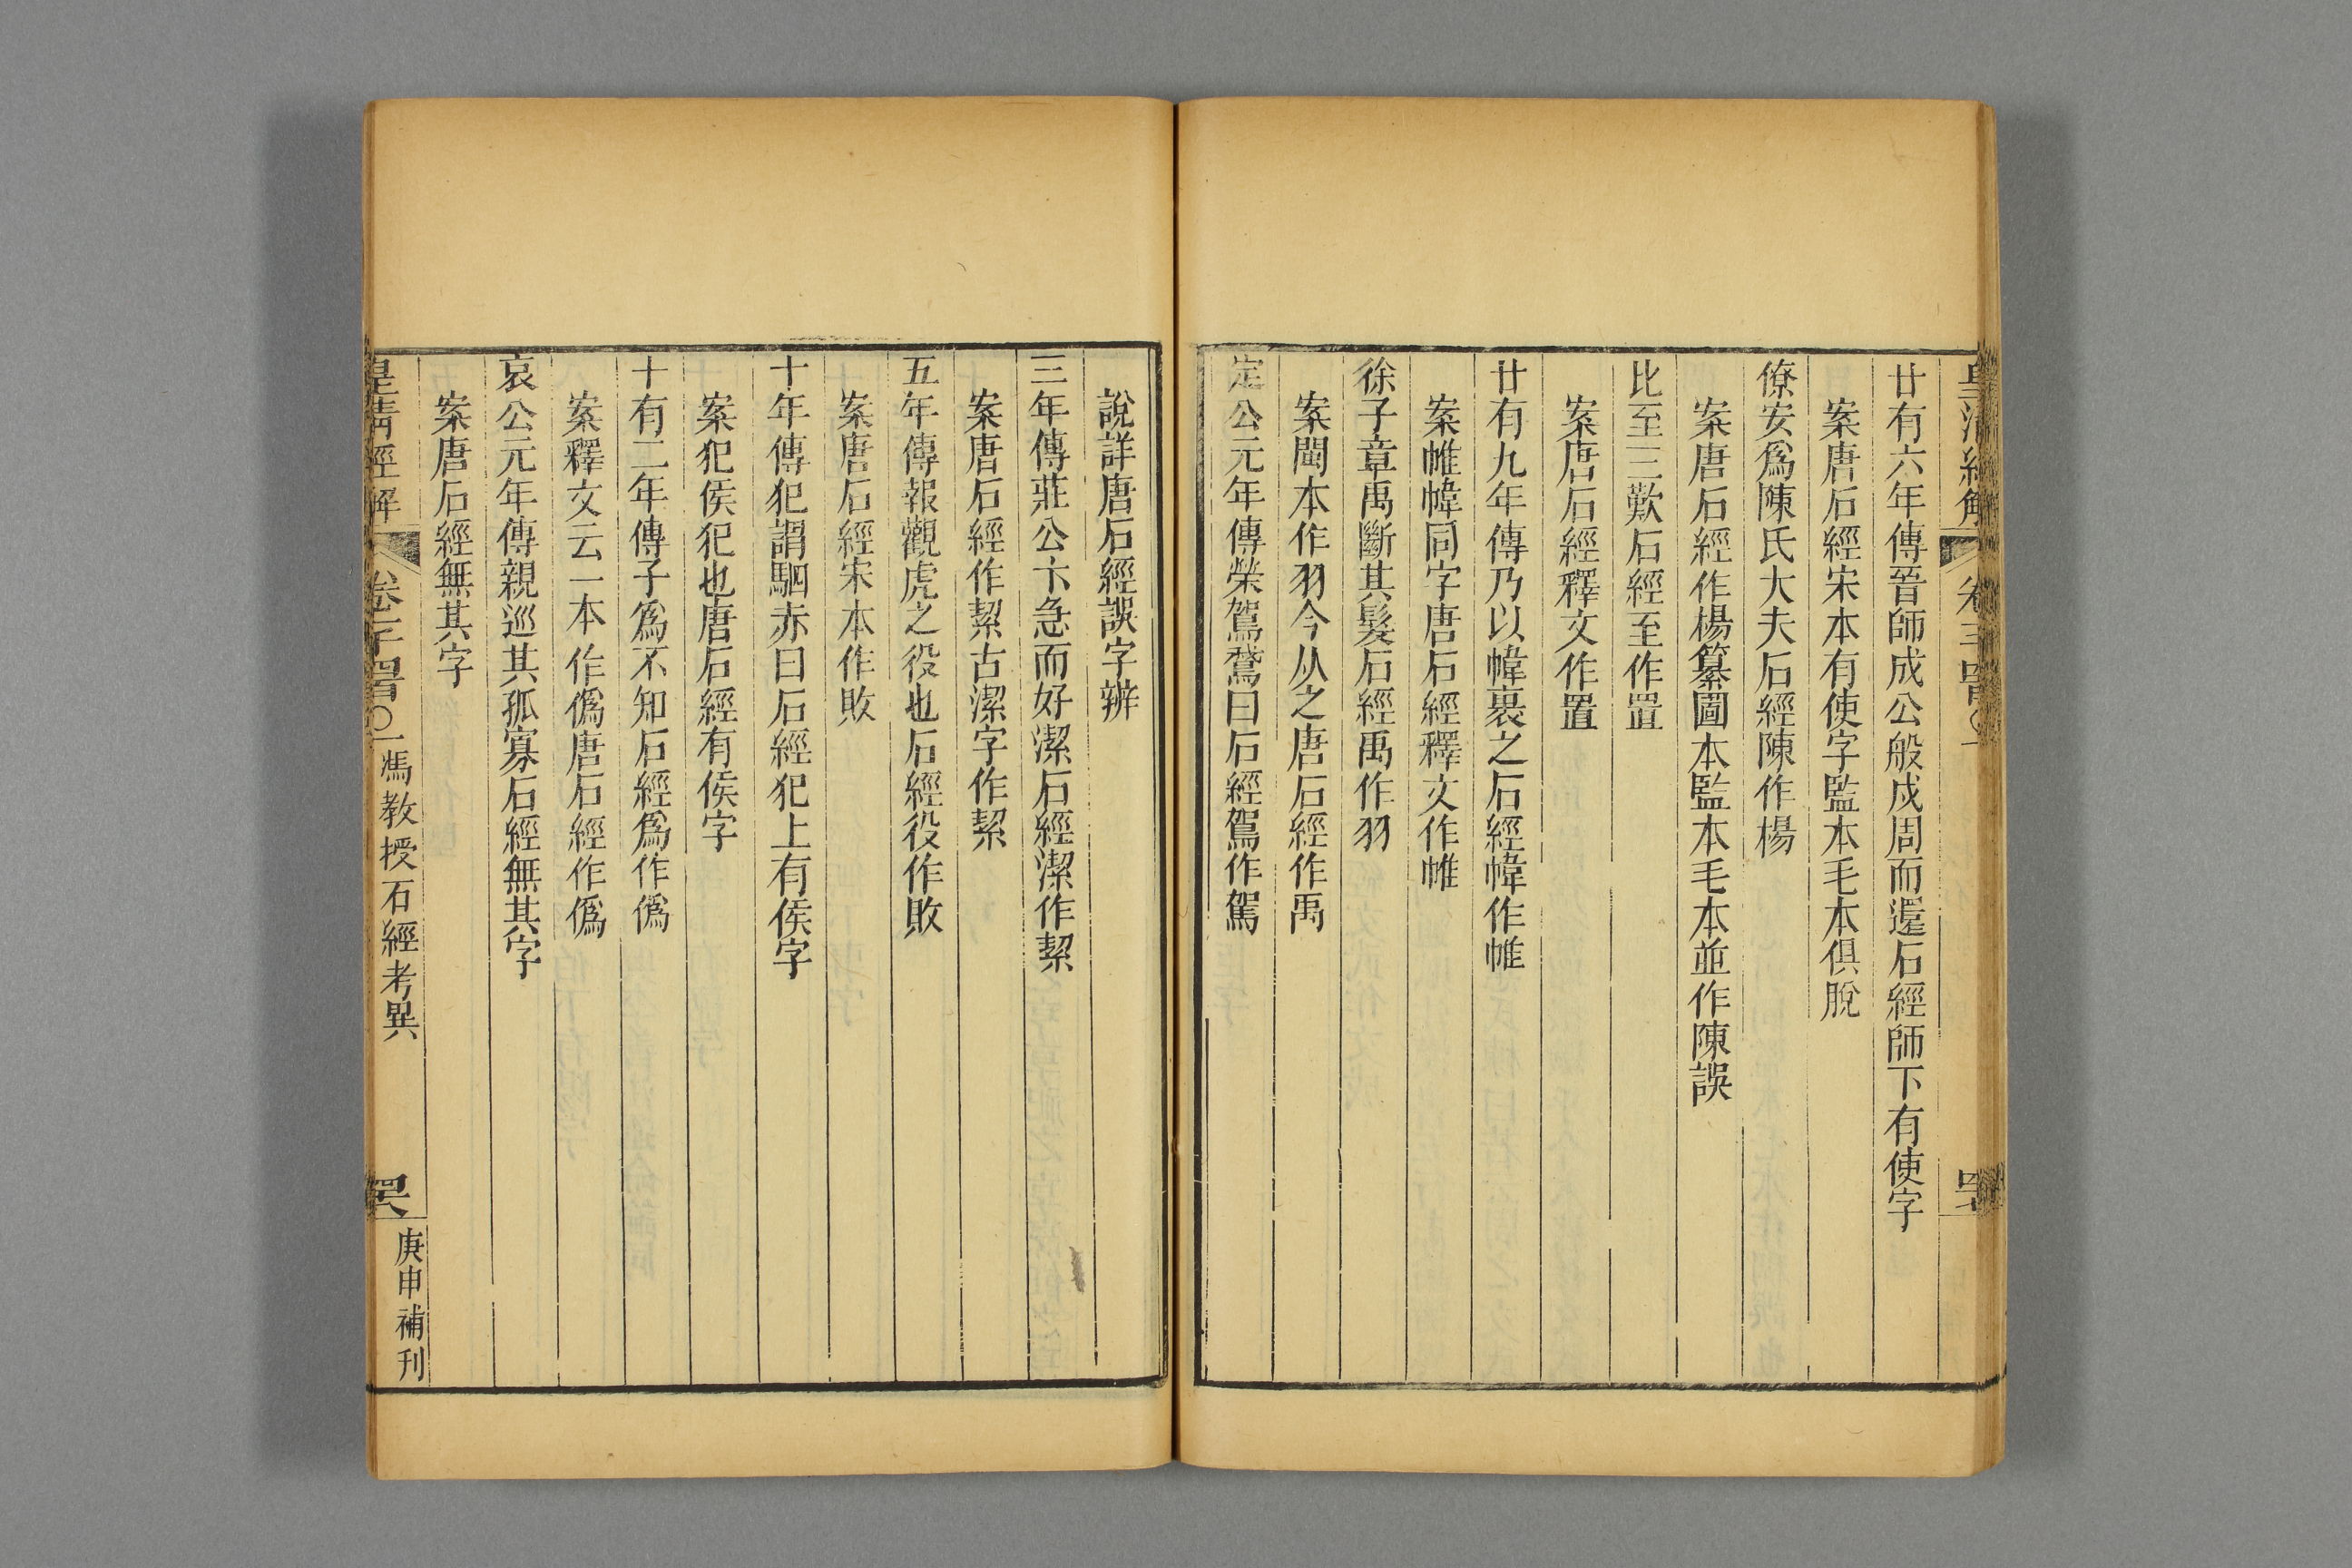 廿有六年傳晉師成公般戍周而還石經師下有使字
案唐石經宋本有使字監本毛本俱脫
僚安爲陳氏大夫石經陳作楊
案唐石經作楊纂圖本監本毛本並作陳誤
比至三歎石經至作置
案唐石經釋文作置
廿有九年傳乃以幃裹之石經幃作帷
案帷幃同字唐石經釋文作帷
徐子章禹斷其髮石經禹作羽
案閩本作羽今从之唐石經作禹
定公元年傳榮鴐鵞曰石經鴐作駕
說詳唐石經誤字辨
三年傳莊公卞急而好潔石經潔作絜
案唐石經作絜古潔字作絜
五年傳報觀虎之役也石經役作敗
案唐石經宋本作敗
十年傳犯謂駟赤曰石經犯上有侯字
案犯侯犯也唐石經有侯字
十有二年傳子爲不知石經爲作僞
案釋文云一本作僞唐石經作僞
哀公元年傳親巡其孤寡石經無其字
案唐石經無其字
皇清經解 卷千四百〇一 馮教授石經考異
庚申補刊